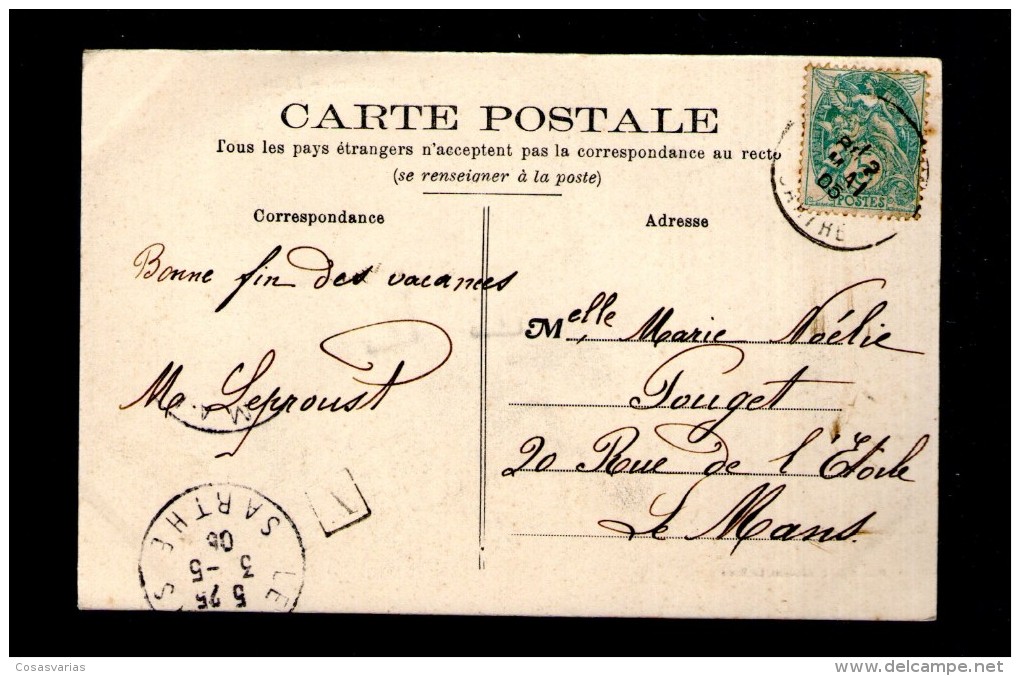 CARTE POSTALE
Tous les pays étrangers n'acceptent pas la correspondance au recto
(se renseigner à la poste)
Correspondance
Adresse
POSTES
MAI
SARTHE
Bonne fin des vacances
M. Leproust
Melle Marie Noélie
Pouget
20 Rue de l'Etoile
Le Mans
LE MA
SARTHE
5 25
3 -5
Cosasvarias
www.delcampe.net